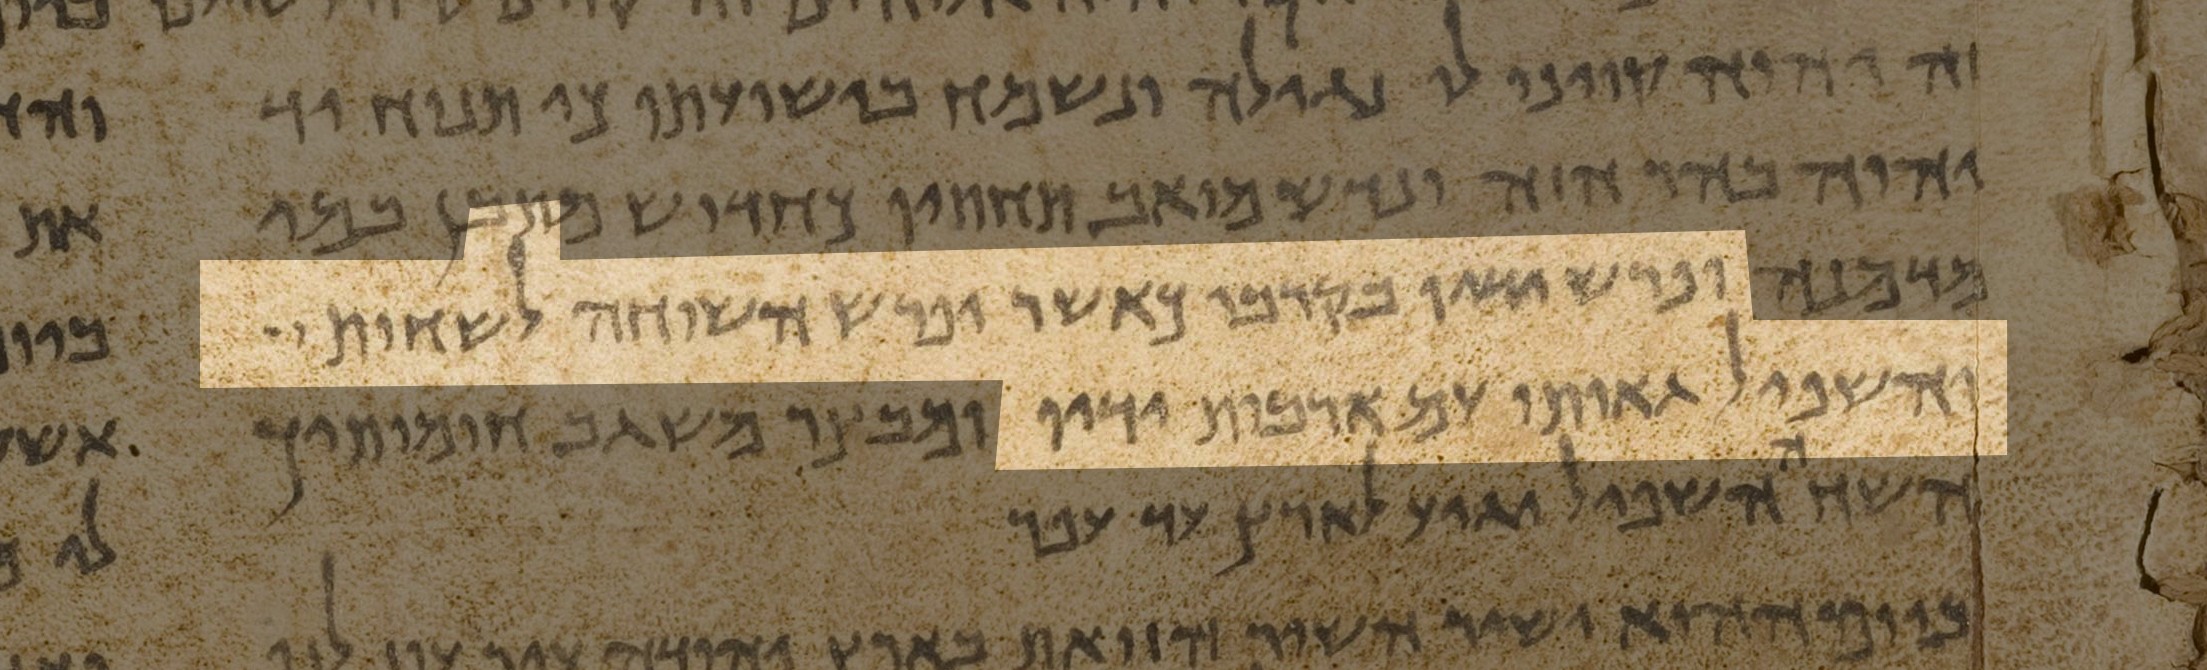 זה יהוה קוינו לו נגילה ונשמח בישועתו כי תנוח יד
יהוה בהר הזה ונדש מואב תחתיו כחדוש מתבן במי
מדמנה ופרש ידיו בקרבו כאשר יפרש השוחה לשחות
והשפיל גאותו עם ארבות ידיו ומבצר משגב חומותיך
השח השפיל יגיע לארץ עד עפר
ביום ההוא ישיר השיר הזואת בארץ יהודה עיר עוז לנו
את